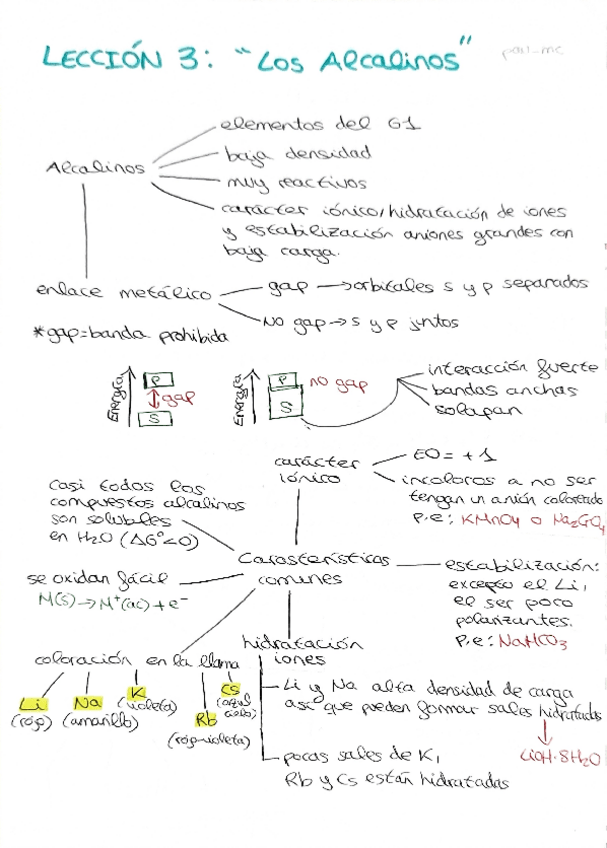 LECCIÓN 3: "Los Alcalinos"
Alcalinos
elementos del G1
baja densidad
muy reactivos
carácter iónico/hidratación de iones
y estabilización aniones grandes con
baja carga.
enlace metálico
gap → orbitales s y p separados
No gap → s y p juntos
*gap=banda prohibida
Energía
P
gap
S
Energía
P
S
no gap
interacción fuerte
bandas anchas
solapan
carácter
iónico
EO= +1
incoloros a no ser
tengan un anión coloreado
p.e: KMnO4 o Na2CrO4
casi todos los
compuestos alcalinos
son solubles
en H2O (ΔG°<0)
Características
comunes
se oxidan fácil
M(s) → M+(ac) + e-
estabilización:
excepto el Li,
el ser poco
polarizantes.
p.e: NaHCO3
coloración en la llama
Li
(rojo)
Na
(amarillo)
K
(violeta)
Rb
(rojo-violeta)
Cs
(azul
cielo)
hidratación
iones
Li y Na alta densidad de carga
así que pueden formar sales hidratadas
LiOH·8H2O
pocas sales de K,
Rb y Cs están hidratadas